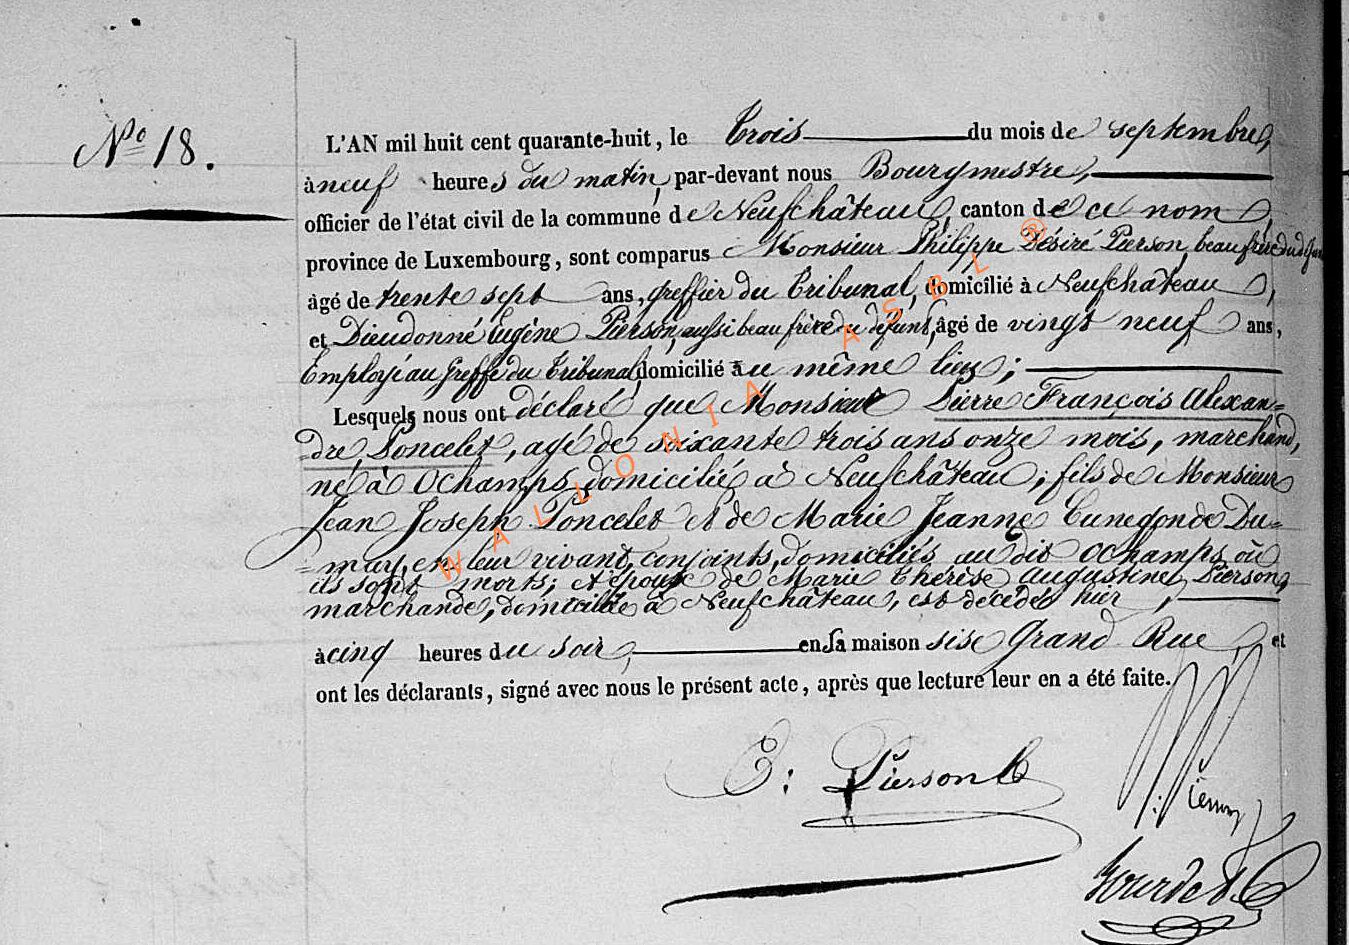 N.º 18.
L'AN mil huit cent quarante-huit, le trois du mois de septembre,
à neuf heures du matin, par-devant nous Bourgmestre,
officier de l'état civil de la commune de Neufchâteau, canton de ce nom,
province de Luxembourg, sont comparus Monsieur Philippe Désiré Pierson, beau frère du
âgé de trente sept ans, greffier du Tribunal, domicilié à Neufchâteau,
et Dieudonné Eugène Pierson, aussi beau frère du défunt, âgé de vingt neuf ans,
Employé au Greffe du Tribunal, domicilié au même lieu;
Lesquels nous ont déclaré que Monsieur Pierre François Alexan=
=dre Poncelet, agé de soixante trois ans onze mois, marchand,
né à Ochamps, domicilié à Neufchâteau; fils de Monsieur
Jean Joseph Poncelet et de Marie Jeanne Cunegonde Du=
=may, en leur vivant, conjoints, domiciliés au dit Ochamps, où
ils sont morts; et époux de Marie Thérèse Augustine Pierson,
marchande, domiciliée à Neufchâteau, est décédé hier,
à cinq heures du soir, en sa maison sise Grand Rue, et
ont les déclarants, signé avec nous le présent acte, après que lecture leur en a été faite.
E: Pierson
WALLONIA ASBL ®